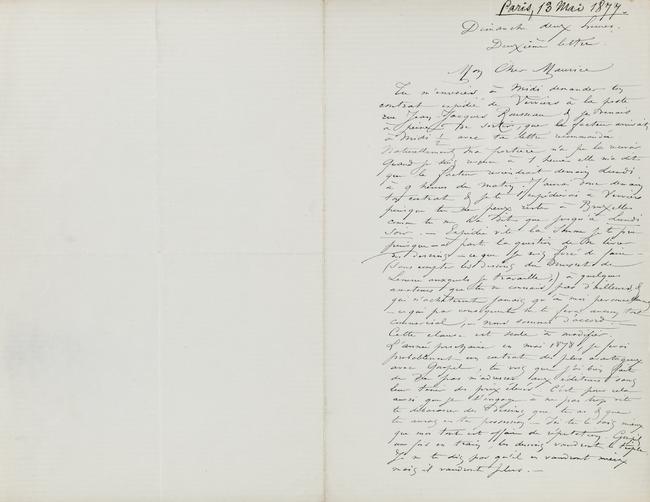 Paris, 13 Mai 1877.
Dimanche deux heures.
Deuxième lettre.
Mon Cher Maurice
Tu m'envoies à Midi demander ton
contrat expédié de Verviers à la poste
rue Jean Jacques Rousseau & je venais
à peine de sortir, que le facteur arrivait
à Midi ! avec ta lettre recommandée
Naturellement ma portière n'a pu la recevoir
Quand je suis revenu à 1 heure elle m'a dit
que le facteur reviendrait demain Lundi
à 9 heures du matin J'aurai donc demain
ton contrat & je te l'expédierai à Verviers
puisque tu ne peux rester à Bruxelles
comme tu me l'as dit que jusqu'à Lundi
Soir. — Expédie vite la
part la question de
des dessins — ce que je suis libre de faire —
(sans compter les dessins du de
Lemerre auxquels je travaille;) à quelques
amateurs que tu ne connais pas d'ailleurs &
qui n'achèteront jamais qu'à moi personnellement
— ce qui par conséquent ne te fera aucun tort
commercial, — nous sommes d'accord —
Cette clause est seule à modifier.
L'année prochaine en mai 1878, je
probablement un contrat de plus avantageux
avec Goupil, tu vois que j'ai bien fait
de ne pas m'adresser aux éditeurs sans
leur tenir des prix élevés C'est pour cela
aussi que je t'engage à ne pas trop vite
te débarrasser des dessins que tu as & que
tu auras en ta possession — Toi tu le sais mieux
que moi tout est affaire de réputation, Goupil
une fois en train, les dessins vaudront le triple
Je ne te dis pas qu'ils en vaudront mieux
mais ils vaudront plus. —